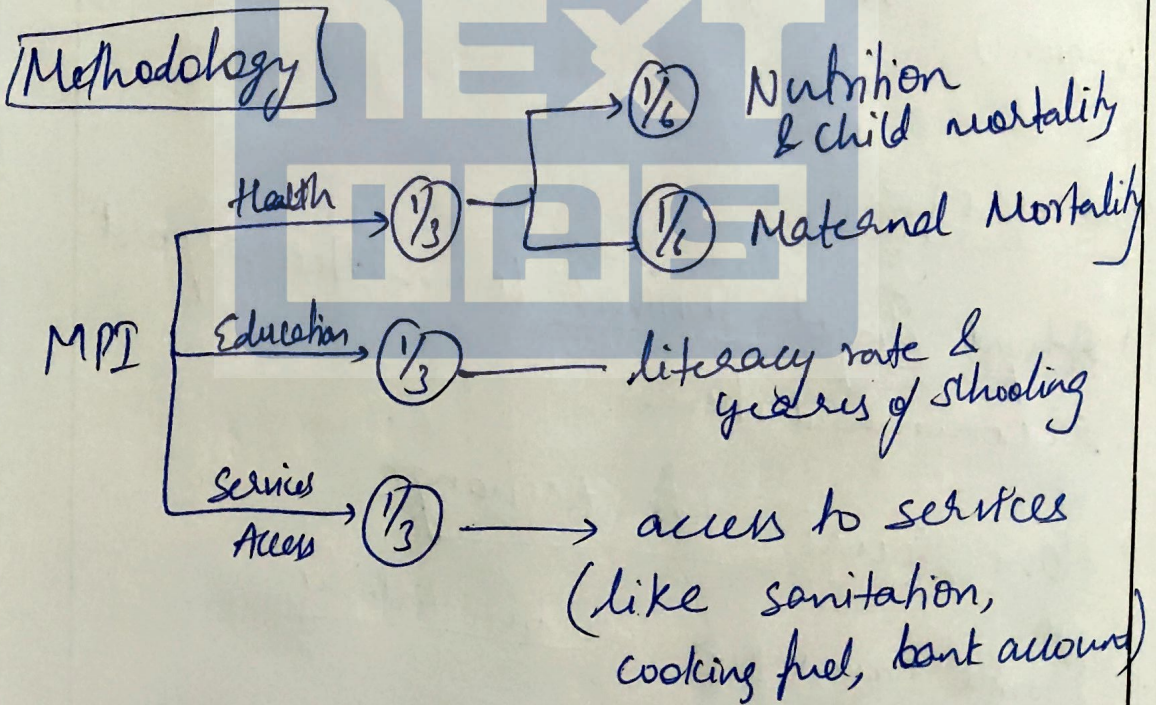 NEXT
IAS
Methodology
1/6 Nutrition
& child mortality
Health 1/3
1/6 Maternal Mortality
MPI
Education 1/3 literacy rate &
years of schooling
Services
Access 1/3 access to services
(like sanitation,
cooking fuel, bank account)